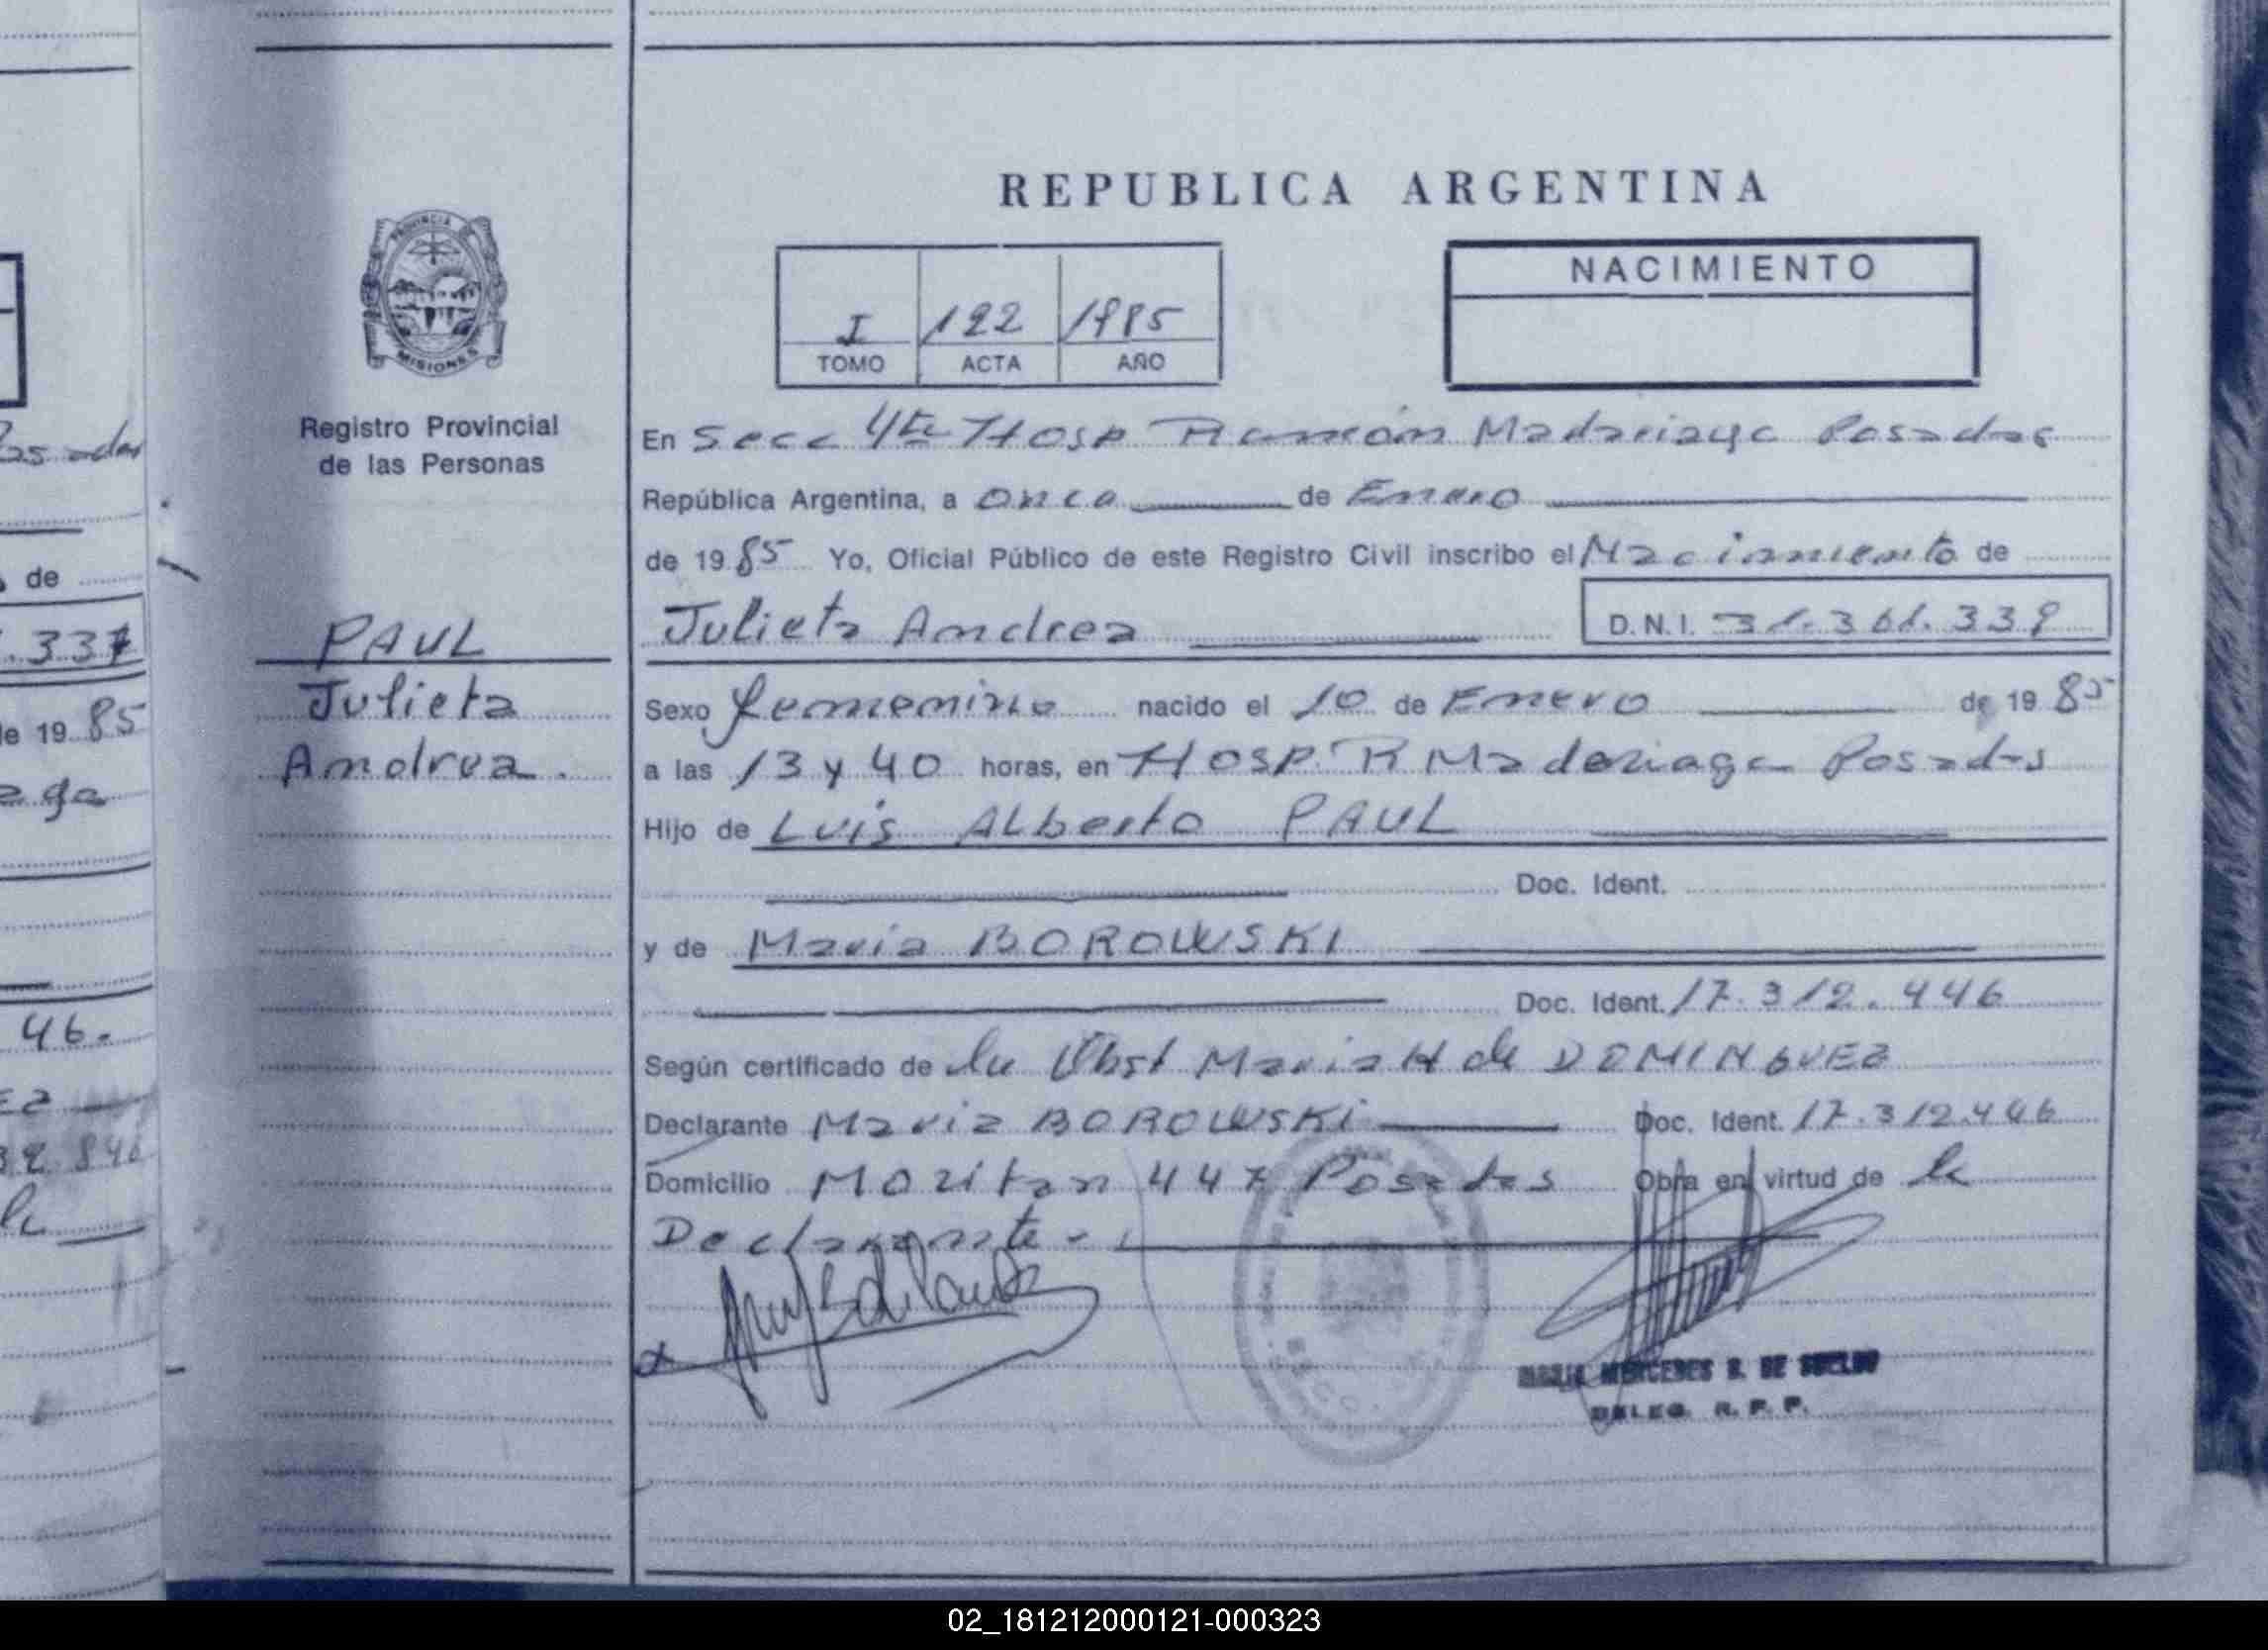 REPUBLICA ARGENTINA
PROVINCIA DE
MISIONES
Registro Provincial
de las Personas
I 122 1985
TOMO ACTA AÑO
NACIMIENTO
En Secc 4ta Hosp Ramón Madariaga Posadas
República Argentina, a once de Enero
de 1985 Yo, Oficial Público de este Registro Civil inscribo el Nacimiento de
PAUL
Julieta
Andrea.
Julieta Andrea D.N.I. 31.361.339
Sexo femenino nacido el 10 de Enero de 1985
a las 13 y 40 horas, en Hosp R Madariaga Posadas
Hijo de Luis Alberto PAUL
Doc. Ident.
y de Maria BOROWSKI
Doc. Ident. 17.312.446
Según certificado de la Obst Maria H de DOMINGUEZ
Declarante Maria BOROWSKI Doc. Ident. 17.312.446
Domicilio 447 Posadas Obra en virtud de la
Declarante -
MERCEDES DE
DELEG. R. P. P.
asadas
de
.337
de 19 85
aga
46.
02_181212000121-000323